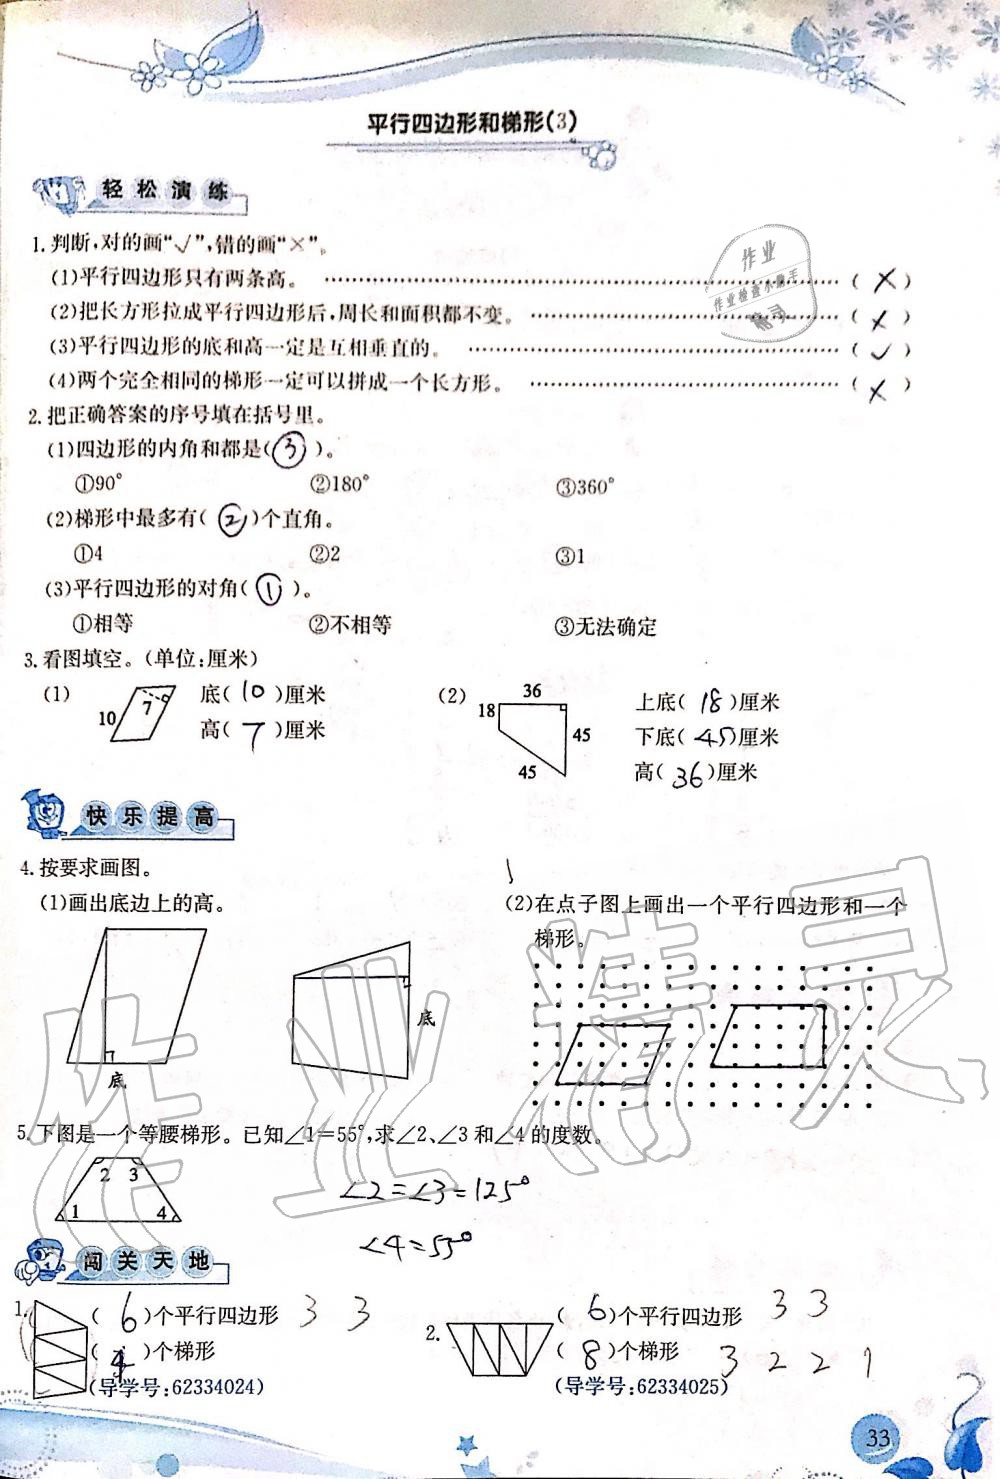 平行四边形和梯形(3)
轻松演练
1.判断,对的画“√”,错的画“×”。
(1)平行四边形只有两条高。 ( × )
(2)把长方形拉成平行四边形后,周长和面积都不变。 ( × )
(3)平行四边形的底和高一定是互相垂直的。 ( √ )
(4)两个完全相同的梯形一定可以拼成一个长方形。 ( × )
作业
作业检查小助手
精灵
2.把正确答案的序号填在括号里。
(1)四边形的内角和都是( ③ )。
①90° ②180° ③360°
(2)梯形中最多有( ② )个直角。
①4 ②2 ③1
(3)平行四边形的对角( ① )。
①相等 ②不相等 ③无法确定
3.看图填空。(单位:厘米)
(1) 10 7 底( 10 )厘米
高( 7 )厘米
(2) 36 18 45 45 上底( 18 )厘米
下底( 45 )厘米
高( 36 )厘米
快乐提高
4.按要求画图。
(1)画出底边上的高。
底
底
(2)在点子图上画出一个平行四边形和一个
梯形。
5.下图是一个等腰梯形。已知∠1=55°,求∠2、∠3和∠4的度数。
2 3
1 4
∠2=∠3=125°
∠4=55°
闯关天地
1. ( 6 )个平行四边形 3 3
( )个梯形
(导学号:62334024)
2. ( 6 )个平行四边形 3 3
( 8 )个梯形 3 2 2 1
(导学号:62334025)
33
作业精灵